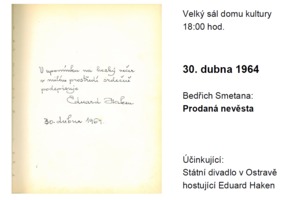 V upomínku na hezký večer
a milé prostředí srdečně
podepisuje
Eduard Haken
30. dubna 1964.
Velký sál domu kultury
18:00 hod.
30. dubna 1964
Bedřich Smetana:
Prodaná nevěsta
Účinkující:
Státní divadlo v Ostravě
hostující Eduard Haken